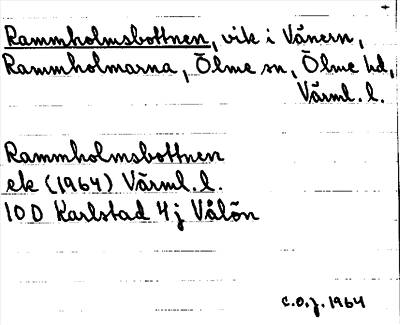 Rammholmsbottnen, vik i Vänern,
Rammholmarna, Ölme sn, Ölme hd,
Värml. l.
Rammholmsbottnen
ek (1964) Värml. l.
10 D Karlstad 4 j Vålön
C.O.J. 1964